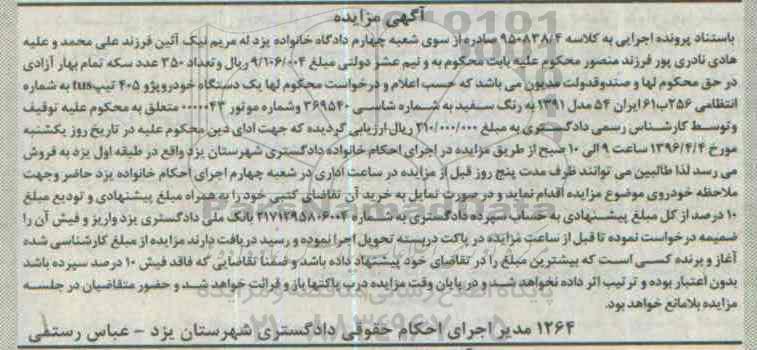 آگهی مزایده
باستناد پرونده اجرایی به کلاسه ۹۵۰۸۳۸/۴ صادره از سوی شعبه چهارم دادگاه خانواده یزد له مریم نیک آئین فرزند علی محمد و علیه
هادی نادری پور فرزند منصور محکوم علیه بابت محکوم به و نیم عشر دولتی مبلغ ۹/۱۰۶/۰۰۴ ریال و تعداد ۳۵۰ عدد سکه تمام بهار آزادی
در حق محکوم لها و صندوقدولت مدیون می باشد که حسب اعلام و درخواست محکوم لها یک دستگاه خودرو پژو ۴۰۵ تیپ tus به شماره
انتظامی ۲۵۶ب۶۱ ایران ۵۴ مدل ۱۳۹۱ به رنگ سفید به شماره شاسی ۳۶۹۵۴۰ وشماره موتور ۰۰۰۰۰۴۳ متعلق به محکوم علیه توقیف
وتوسط کارشناس رسمی دادگستری به مبلغ ۲۱۰/۰۰۰/۰۰۰ ریال ارزیابی گردیده که جهت ادای دین محکوم علیه در تاریخ روز یکشنبه
مورخ ۱۳۹۶/۴/۴ ساعت ۹ الی ۱۰ صبح از طریق مزایده در اجرای احکام خانواده دادگستری شهرستان یزد واقع در طبقه اول یزد به فروش
می رسد لذا طالبین می توانند ظرف مدت پنج روز قبل از مزایده در ساعت اداری در شعبه چهارم اجرای احکام خانواده یزد حاضر وجهت
ملاحظه خودروی موضوع مزایده اقدام نماید و در صورت تمایل به خرید آن تقاضای کتبی خود را به همراه مبلغ پیشنهادی و تودیع مبلغ
۱۰ درصد از کل مبلغ پیشنهادی به حساب سپرده دادگستری به شماره ۲۱۷۱۲۹۵۸۰۶۰۰۴ بانک ملی دادگستری یزد واریز و فیش آن را
ضمیمه درخواست نموده تا قبل از ساعت مزایده در پاکت دربسته تحویل اجرا نموده و رسید دریافت دارند مزایده از مبلغ کارشناسی شده
آغاز و برنده کسی است که بیشترین مبلغ را در تقاضای خود پیشنهاد داده باشد و ضمنا تقاضایی که فاقد فیش ۱۰ درصد سپرده باشد
بدون اعتبار بوده و ترتیب اثر داده نخواهد شد و در پایان وقت مزایده درب پاکتها باز و قرائت خواهد شد و حضور متقاضیان در جلسه
مزایده بلامانع خواهد بود.
۱۲۶۴ مدیر اجرای احکام حقوقی دادگستری شهرستان یزد - عباس رستفی